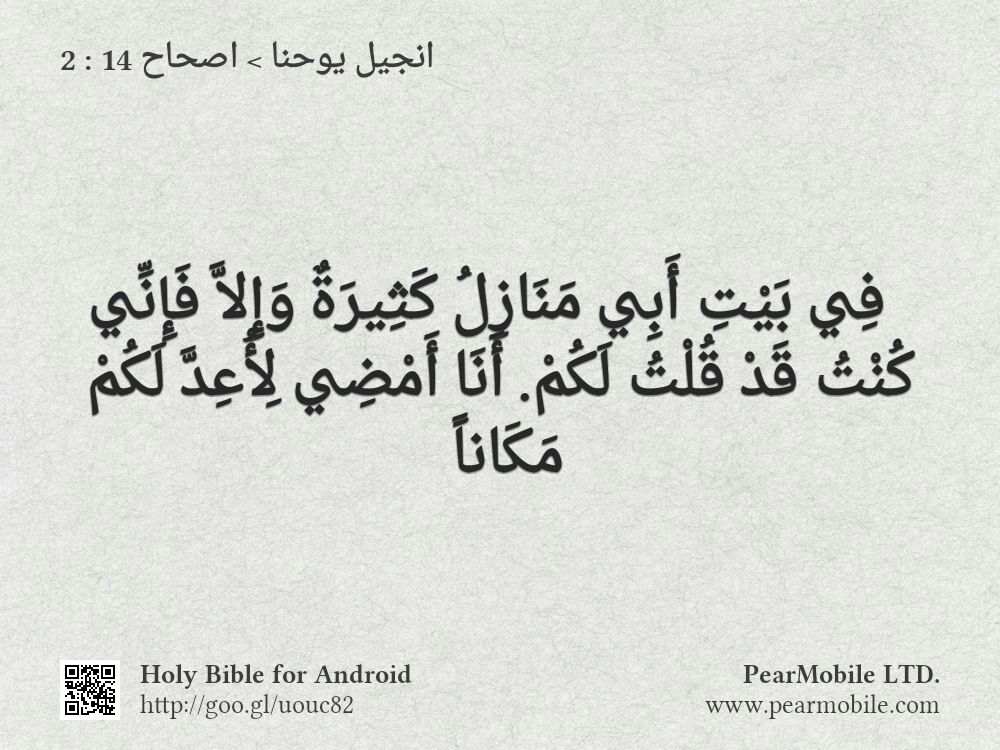 انجيل يوحنا > اصحاح 14 : 2
فِي بَيْتِ أَبِي مَنَازِلُ كَثِيرَةٌ وَإِلاَّ فَإِنِّي
كُنْتُ قَدْ قُلْتُ لَكُمْ. أَنَا أَمْضِي لِأُعِدَّ لَكُمْ
مَكَاناً
Holy Bible for Android
http://goo.gl/uouc82
PearMobile LTD.
www.pearmobile.com